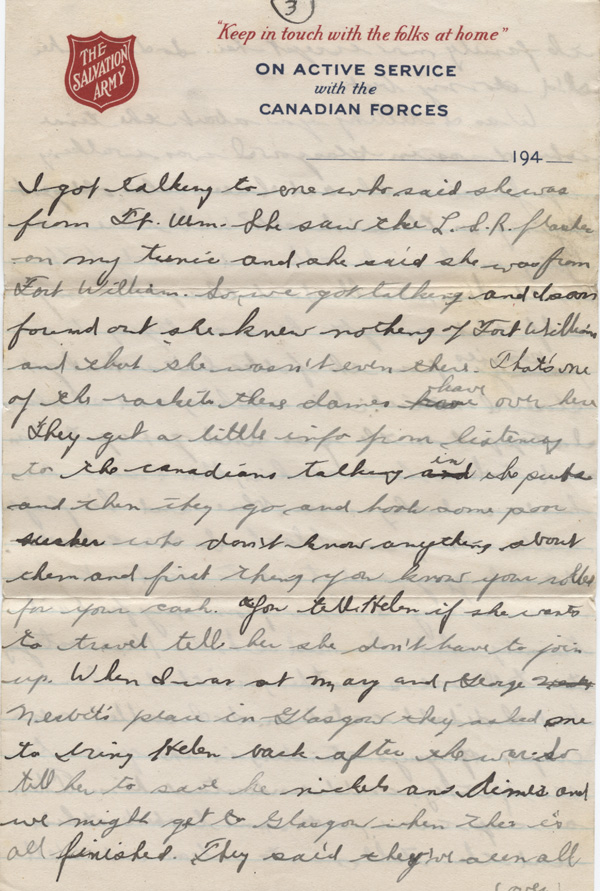 3
"Keep in touch with the folks at home"
THE
SALVATION
ARMY
ON ACTIVE SERVICE
with the
CANADIAN FORCES
194
I got talking to one who said she was
from Ft. Wm. She saw the L.S.R. flashes
on my tunic and she said she was from
Fort William. So, we got talking and I soon
found out she knew nothing of Fort William
and that she wasn't even there. That's one
of the rackets these dames have over here
They get a little info from listening
to the canadians talking in the pubs
and then they go and hook some poor
sucker who don't know anything about
them and first thing you know your rolled
for your cash. You tell Helen if she wants
to travel tell her she don't have to join
up. When I was at Mary and George
Nesbit's place in Glasgow they asked me
to bring Helen back after the war. So
tell her to save he nickels and dimes and
we might get to Glasgow when this is
all finished. They said they've seen all
(over)